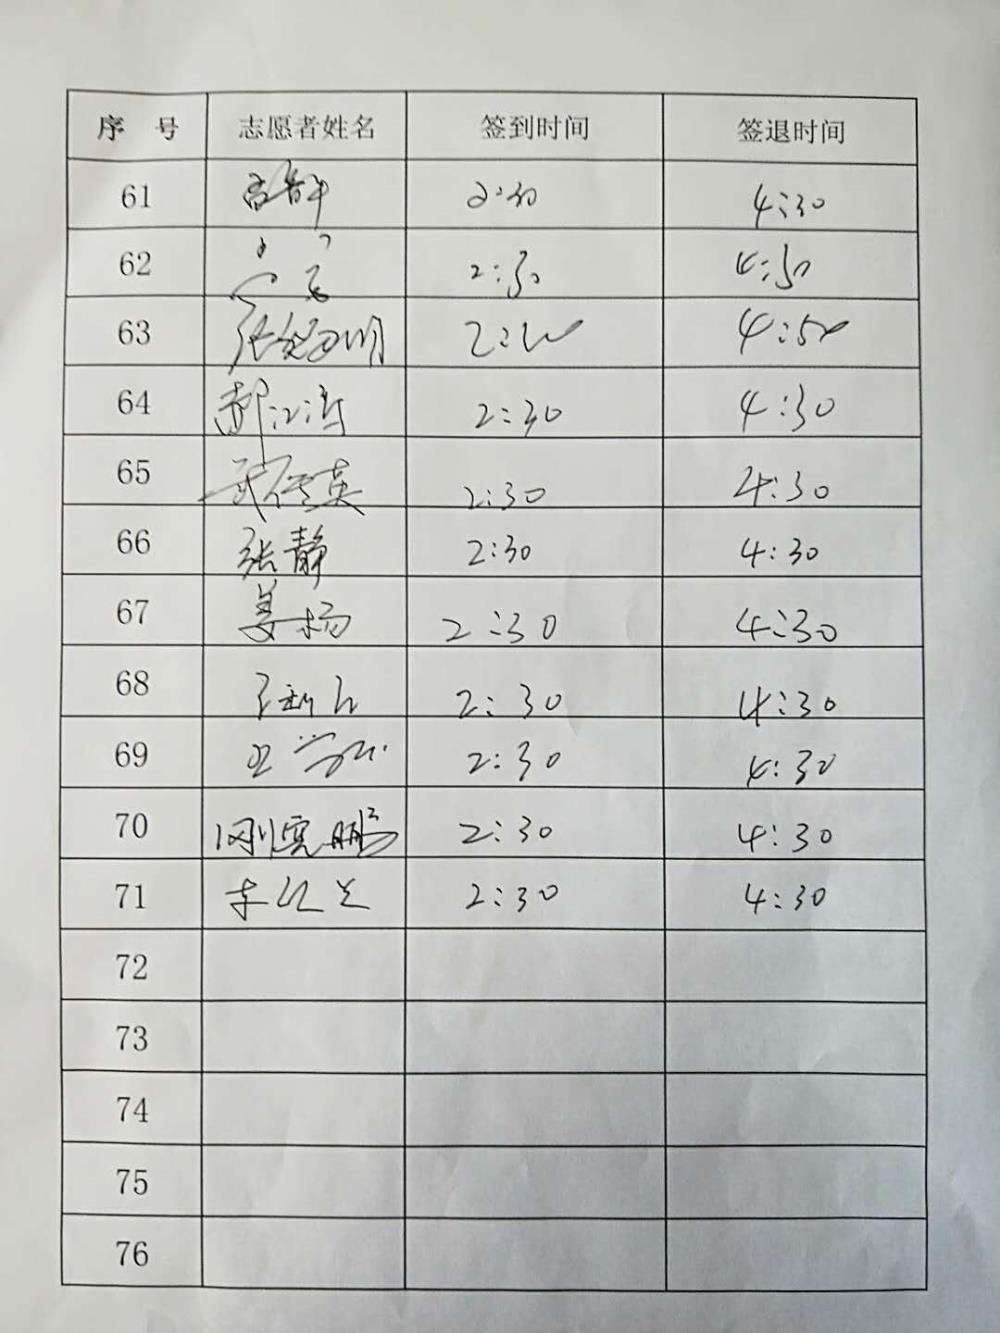 序 号 志愿者姓名 签到时间 签退时间
61 2:30 4:30
62 2:30 4:30
63 4:50
64 郝江涛 2:30 4:30
65 武俊英 2:30 4:30
66 张静 2:30 4:30
67 姜杨 2:30 4:30
68 2:30 4:30
69 2:30 4:30
70 2:30 4:30
71 2:30 4:30
72
73
74
75
76